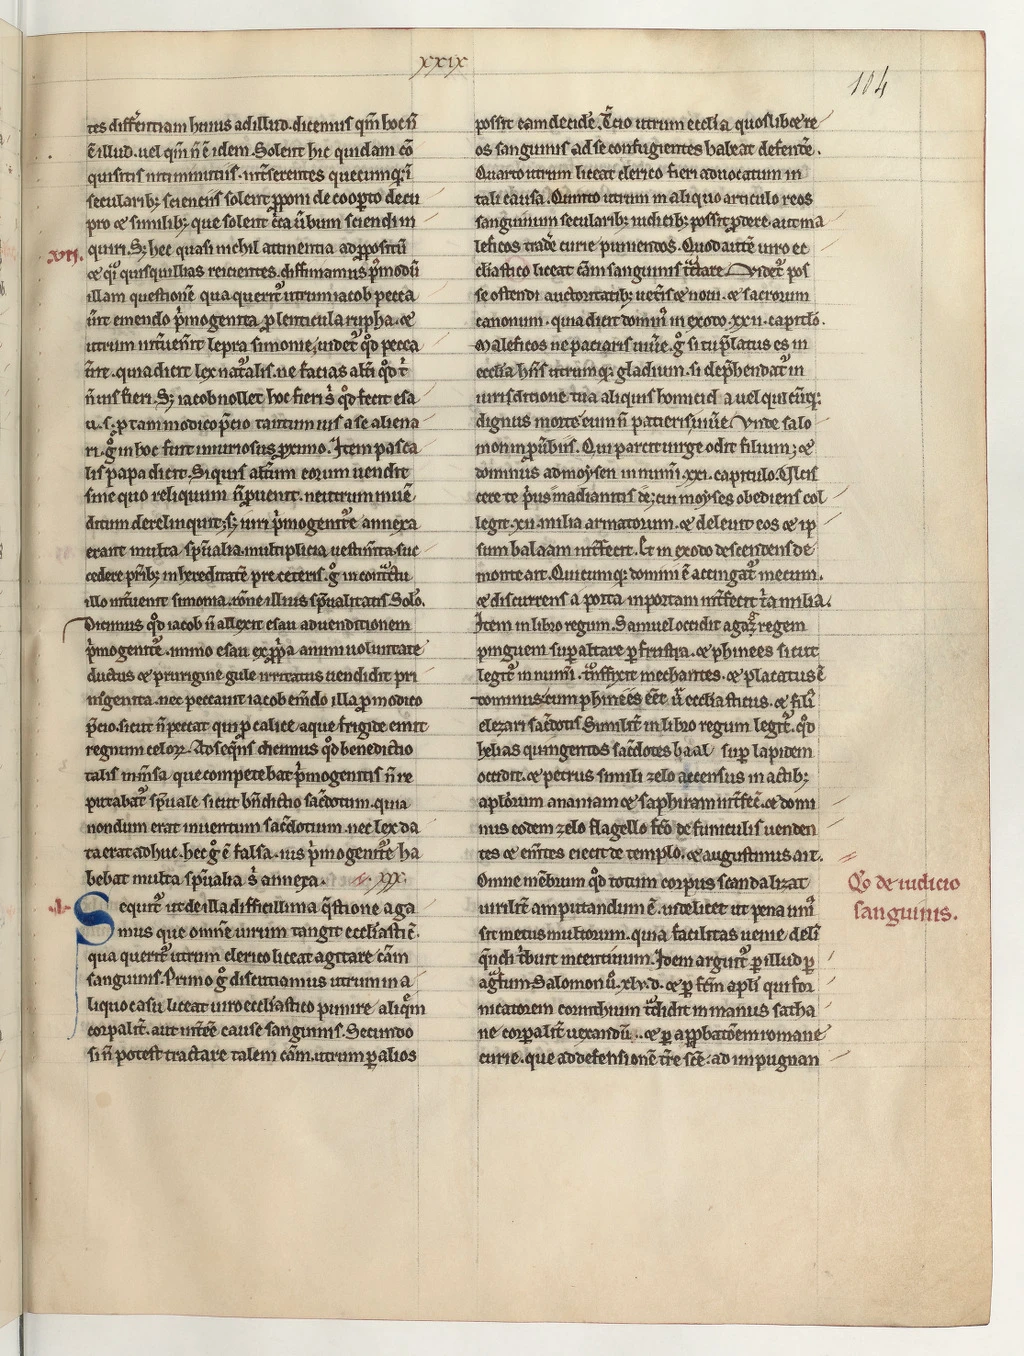 xxix
104
tes differentiam huius ad illud. dicemus qm̄ hoc n̄
ē illud. uel qm̄ n̄ ē idem. Solent hic quidam cō
quisitis uti minutiis. int̄serentes quecumq; ī
secularib; scientiis solent p̄poni de coop̄to decu
pro ⁊ similib; que solent c̄ca ūbum sciendi in
xvij.
quiri. S; hec quasi nichil attinentia ad p̄positū
illam questionē qua querit̄ utrum iacob pecca
ūit emendo p̄mogenita p̄ lenticula rupha. ⁊
utrum int̄uen̄it lepra simonie, uidet̄ qd̄ pecca
ūit. quia dicit lex nat̄alis. ne facias alii qd̄ t̄
n̄ uis fieri. S; iacob nollet hoc fieri s̄ qd̄ fecit esa
u. s. p̄ tam modico p̄cio tantum ius a se aliena
ri. ḡ in hoc fuit iniuriosus p̄ximo. Item pasca
lis papa dicit. Si quis alt̄um eorum uendit
sine quo reliquum n̄ p̄uenit. neutrum inuē
ditum derelinquit. s; iuri p̄mogenit̄e annexa
erant multa sp̄ualia. multiplicia uestim̄ta. suc
cedere pr̄ib; in hereditatē pre ceteris. ḡ in cont̄ctu
illo int̄uenit simonia. rōne illius sp̄ualitatis. Solō.
Dicimus qd̄ iacob n̄ allexit esau ad uenditionem
p̄mogenit̄e. immo esau ex p̄p̄a animi uoluntate
ductus ⁊ prurigine gule irritatus uendidit pri
mogenita. nec peccauit iacob em̄do illa p̄ modico
p̄cio. sicut n̄ peccat qui p̄ calice aque frigide emit
regnum celoꝝ. Ad seq̄ns dicimus qd̄ benedictio
talis im̄n̄sa que competebat p̄mogenitis n̄ re
putabat̄ sp̄uale sicut bn̄dictio sac̄dotum. quia
nondum erat inuentum sac̄dotium. nec lex da
ta erat adhuc. hec ḡ ē falsa. ius p̄mogenit̄e ha
bebat multa sp̄ualia s̄ annexa. xxx.
Sequit̄ ut de illa difficillima q̄stione aga
mus que omnē uirum tangit eccl̄iasticū.
qua querit̄ utrum clerico liceat agitare cām
sanguinis. Primo ḡ discutiamus utrum in a
liquo casu liceat uiro eccl̄iastico punire aliq̄m
corpalit̄. aut int̄eē cause sanguinis. Secundo
si n̄ potest tractare talem cām. utrum p̄ alios
possit eam decid̄e. T̄cio utrum eccl̄ia quoslibet re
os sanguinis ad se confugientes habeat defend̄e.
Quarto utrum liceat clerico fieri aduocatum in
tali causa. Quinto utrum in aliquo articulo reos
sanguinum secularib; iudicib; possit p̄dere. aut ma
leficos trad̄e curie puniendos. Quod autē uiro ec
cl̄iastico liceat cām sanguinis t̄ctare. Videt̄ pos
se ostendi auctoritatib; uet̄is ⁊ noui. ⁊ sacrorum
canonum. quia dicit domin̄ in exodo. xxii. capitlō.
Maleficos ne paciaris uiūe. ḡ si tu p̄latus es in
eccl̄ia hn̄s utrumq; gladium. si dep̄hendat̄ in
iurisditione tua aliquis homicida uel quicūq;
dignus morte eum n̄ patieris uiūe. Vnde salo
mon in p̄ūbiis. Qui parcit uirge odit filium; ⁊
dominus ad moysen in num̄. xxi. capitulo. Vlcis
cere te p̄us madianitis de; cui moyses obediens col
legit. xii. milia armatorum. ⁊ deleuit eos ⁊ ip
sum balaam int̄fecit. Et in exodo descendens de
monte ait. Quicumq; domini ē accingat̄ mecum.
⁊ discurrens a porta in portam int̄fecit t̄a milia.
Item in libro regum. Samuel occidit agag regem
pinguem sup̄ altare p̄ frustra. ⁊ phinees sicut
legit̄ in num̄. t̄nsfixit mechantes. ⁊ placatus ē
dominus. cum phinees eēt ū eccl̄iasticus. ⁊ fili
elezari sac̄dotis. Similit̄ in libro regum legit̄. qd̄
helias quingentos sac̄dotes baal sup̄ lapidem
occidit. ⁊ petrus simili zelo accensus in actib;
apl̄orum ananiam ⁊ saphiram int̄fec̄. ⁊ domi
nus eodem zelo flagello fc̄o de funiculis uenden
tes ⁊ em̄tes eiecit de templo. ⁊ augustinus ait.
Omne mēbrum qd̄ totum corpus scandalizat
uirilit̄ amputandum ē. uidelicet ut pena uni
sit metus multorum. quia facilitas uenie deli
q̄ndi t̄buit incentiuum. Idem arguit̄ p̄ illud p̄
nicatorem corinthium t̄didit in manus satha
ne corpalit̄ uexandū. ⁊ p̄ app̄batōem romane
curie. que ad defensionē t̄re sc̄e. ad impugnan
Qō de iudicio
sanguinis.